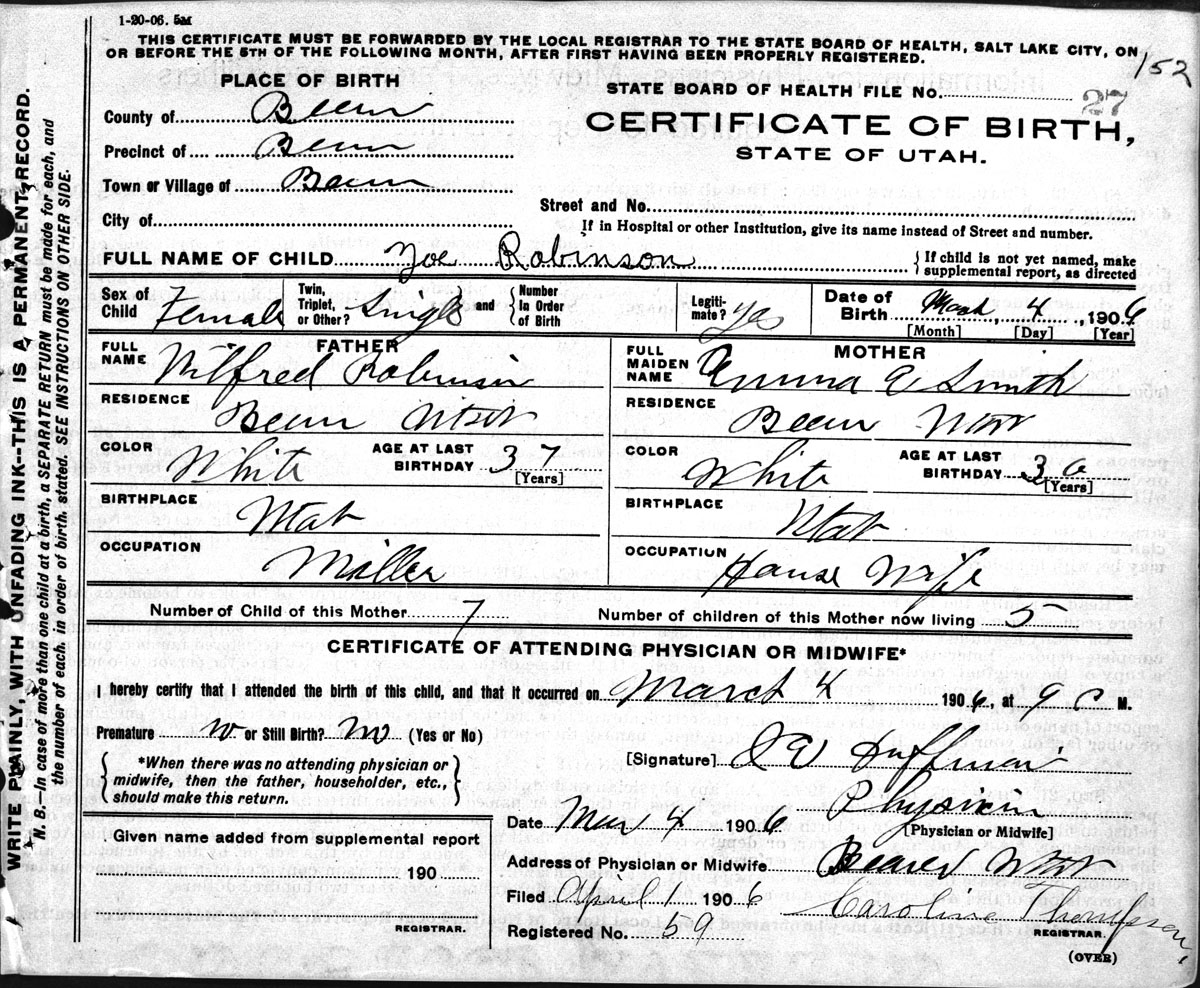 1-20-06. 5M
THIS CERTIFICATE MUST BE FORWARDED BY THE LOCAL REGISTRAR TO THE STATE BOARD OF HEALTH, SALT LAKE CITY, ON
OR BEFORE THE 5TH OF THE FOLLOWING MONTH, AFTER FIRST HAVING BEEN PROPERLY REGISTERED.
152
PLACE OF BIRTH
STATE BOARD OF HEALTH FILE NO. 27
County of
CERTIFICATE OF BIRTH,
Precinct of
STATE OF UTAH.
Town or Village of
Street and No.
City of
If in Hospital or other Institution, give its name instead of Street and number.
FULL NAME OF CHILD Zoe Robinson { If child is not yet named, make supplemental report, as directed
Sex of Child Female Twin, Triplet, or Other? Single } and { Number In Order of Birth Legitimate? Yes Date of Birth March 4, 1906
[Month] [Day] [Year]
FATHER
MOTHER
FULL NAME Wilfred Robinson
FULL MAIDEN NAME Emma E Smith
RESIDENCE
RESIDENCE
COLOR White AGE AT LAST BIRTHDAY 37 [Years]
COLOR White AGE AT LAST BIRTHDAY 36 [Years]
BIRTHPLACE Utah
BIRTHPLACE Utah
OCCUPATION Miller
OCCUPATION House Wife
Number of Child of this Mother 7 Number of children of this Mother now living 5
CERTIFICATE OF ATTENDING PHYSICIAN OR MIDWIFE*
I hereby certify that I attended the birth of this child, and that it occurred on March 4 1906, at 9 M.
Premature no or Still Birth? no (Yes or No)
{ *When there was no attending physician or midwife, then the father, householder, etc., should make this return. }
[Signature] Huffman
Physician
[Physician or Midwife]
Date Mar 4 1906
Given name added from supplemental report
190
REGISTRAR.
Address of Physician or Midwife Beaver Utah
Filed April 1 1906 Caroline Thompson,
REGISTRAR.
Registered No. 59
(OVER)
WRITE PLAINLY, WITH UNFADING INK--THIS IS A PERMANENT RECORD.
N. B.—In case of more than one child at a birth, a SEPARATE RETURN must be made for each, and
the number of each, in order of birth, stated. SEE INSTRUCTIONS ON OTHER SIDE.